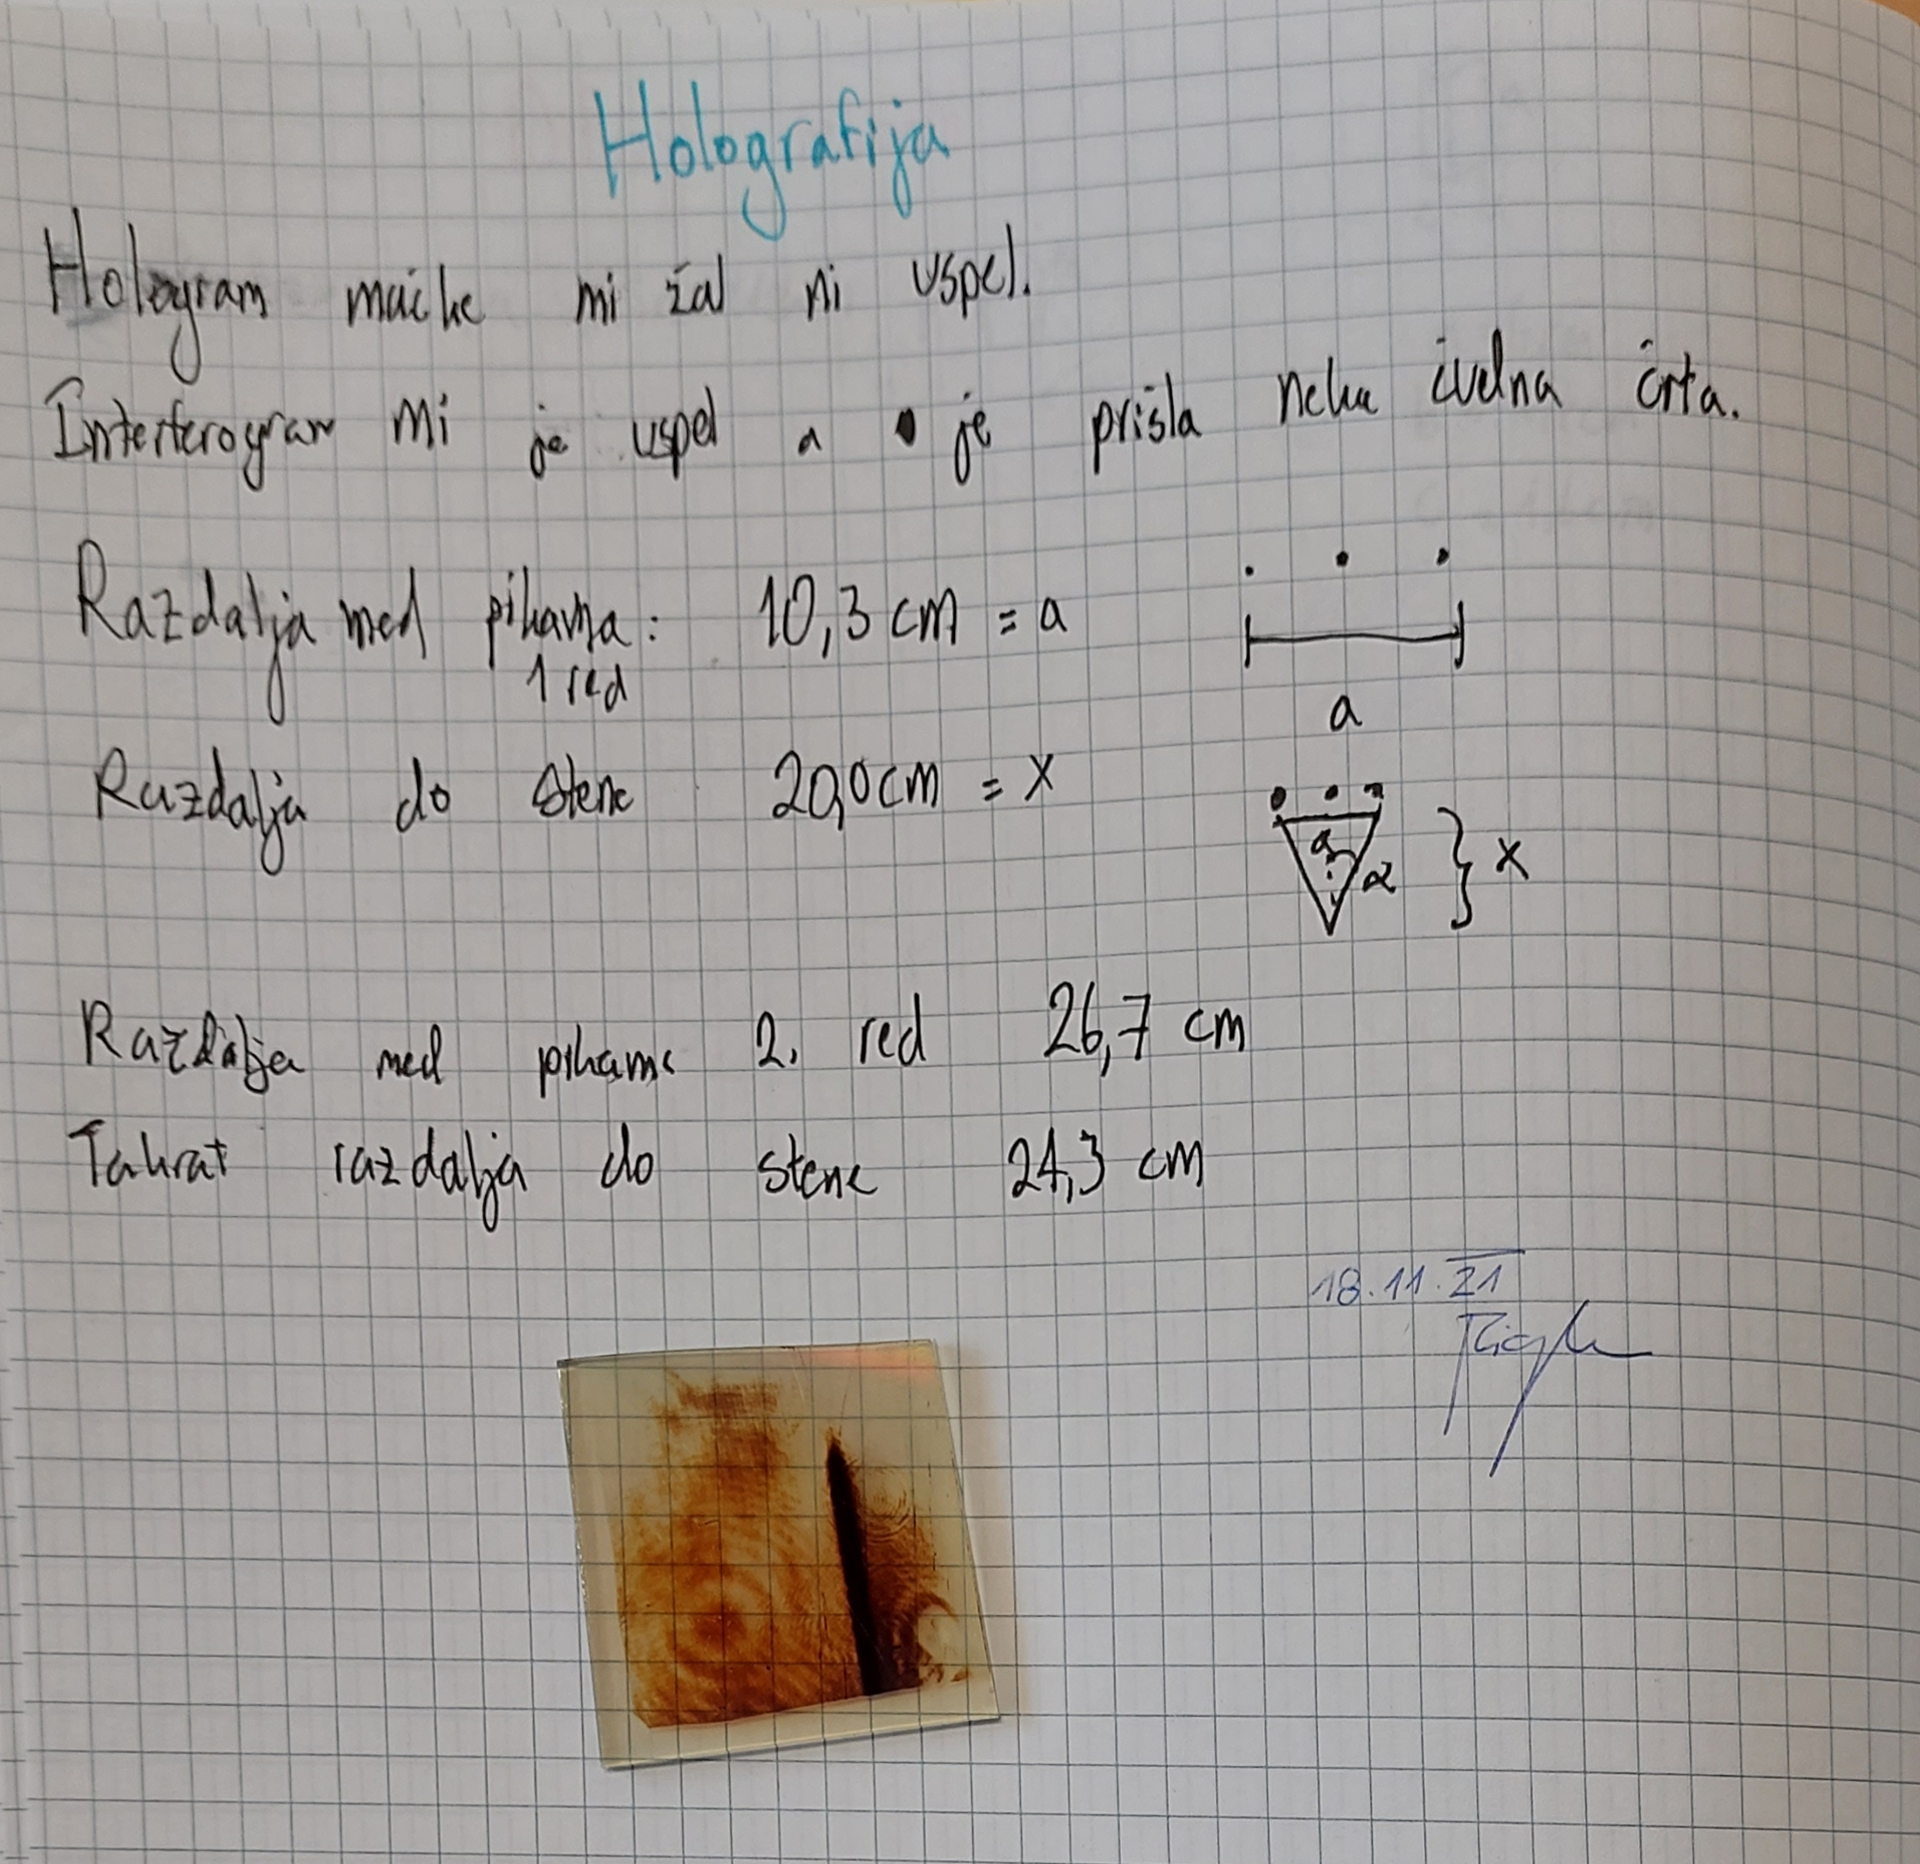 Holografija
Hologram mačke mi žal ni uspel.
Interferogram mi je uspel a je prišla neka čudna črta.
Razdalja med pikama: 10,3 cm = a
1 red
a
Razdalja do stene 20,0 cm = x
α x
Razdalja med pikama 2. red 26,7 cm
Takrat razdalja do stene 24,3 cm
18.11.21